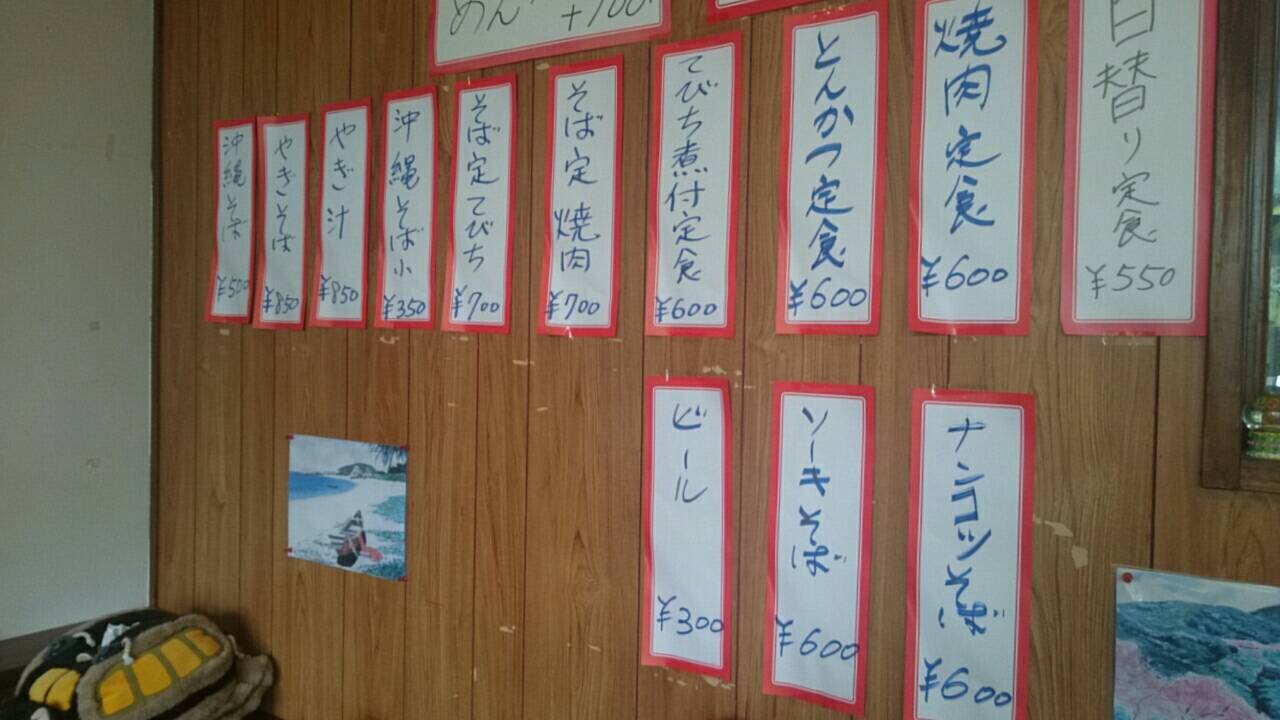 日替り定食
¥550
焼肉定食
¥600
とんかつ定食
¥600
てびち煮付定食
¥600
そば定 焼肉
¥700
そば定 てびち
¥700
沖縄そば小
¥350
やぎ汁
¥850
やぎそば
¥850
沖縄そば
¥500
ナンコツそば
¥600
ソーキそば
¥600
ビール
¥300